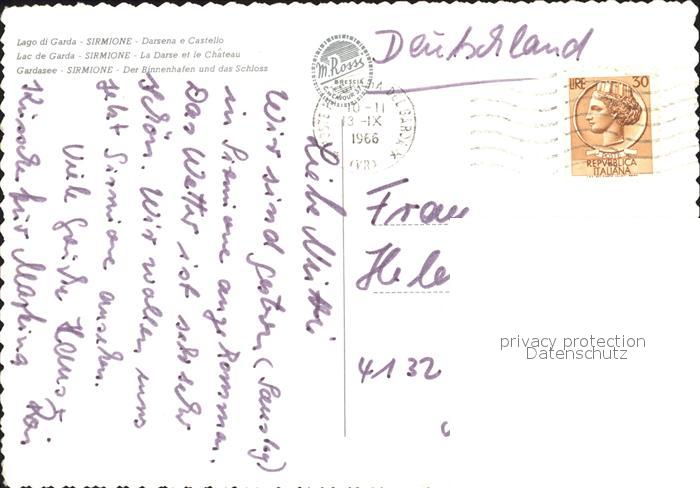 Lago di Garda - SIRMIONE - Darsena e Castello
Lac de Garda - SIRMIONE - La Darse et le Château
Gardasee - SIRMIONE - Der Binnenhafen und das Schloss
M. Rossi
BRESCIA
Deutschland
10-11
13-IX
1966
(VR)
LIRE 30
POSTE
REPVBBLICA
ITALIANA
Liebe Mutti
Wir sind gestern (Samstag)
in Sirmione angekommen.
Das Wetter ist sehr
schön. Wir wollen uns
jetzt Sirmione ansehn.
Viele Grüße Hans
Küsschen für Martina
Frau
Hele
4132
privacy protection
Datenschutz